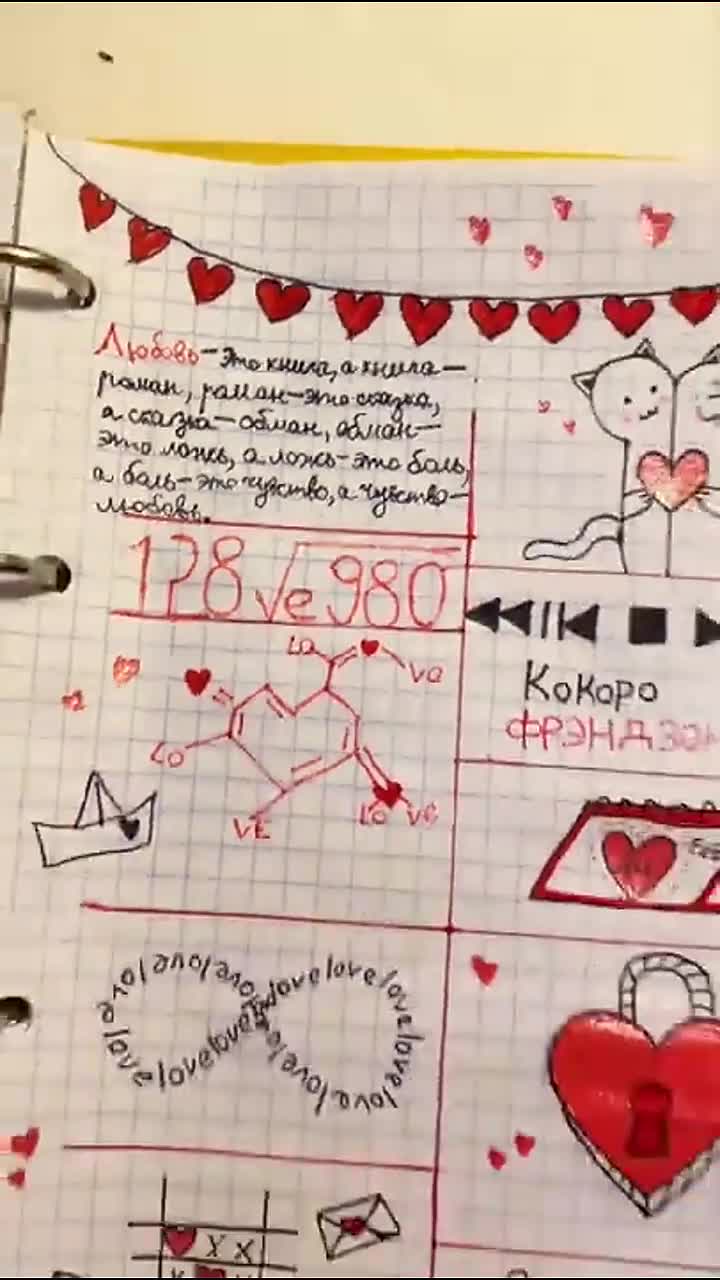 Любовь - это книга, а книга -
роман, роман - это сказка,
а сказка - обман, обман -
это ложь, а ложь - это боль,
а боль - это чувство, а чувство -
любовь.
128√e980
Кокоро
LO
VO
LO
VE
LO VE
lovelovelovelovelovelovelovelovelovelovelove
X X
X